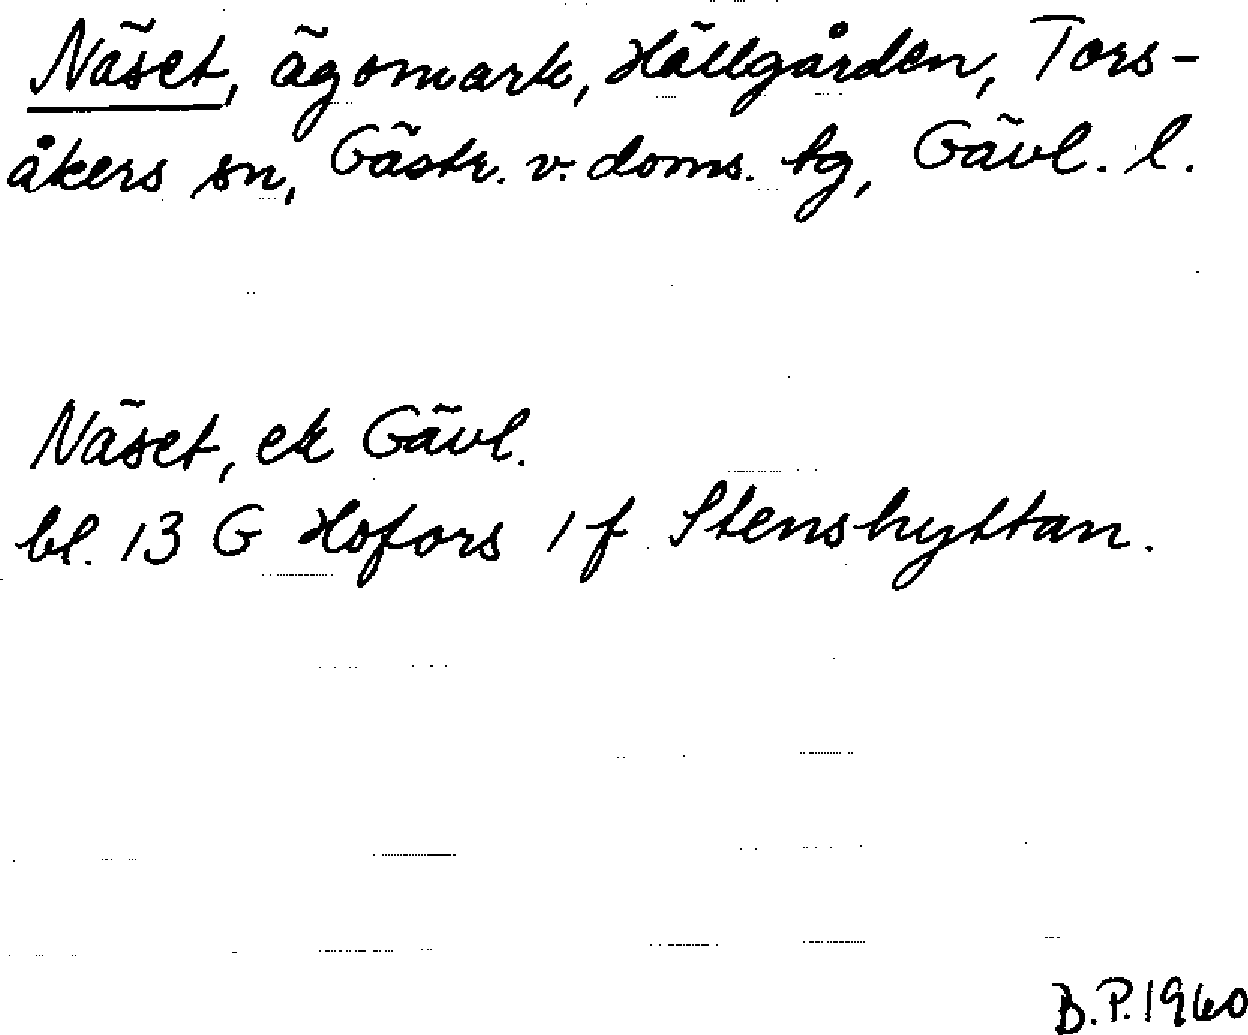 Näset, ägomark, Hällgården, Tors-
åkers sn, Gästr. v. doms. tg, Gävl. l.
Näset, ek Gävl.
bl. 13 G Hofors 1 f Stenshyttan.
B.P. 1960